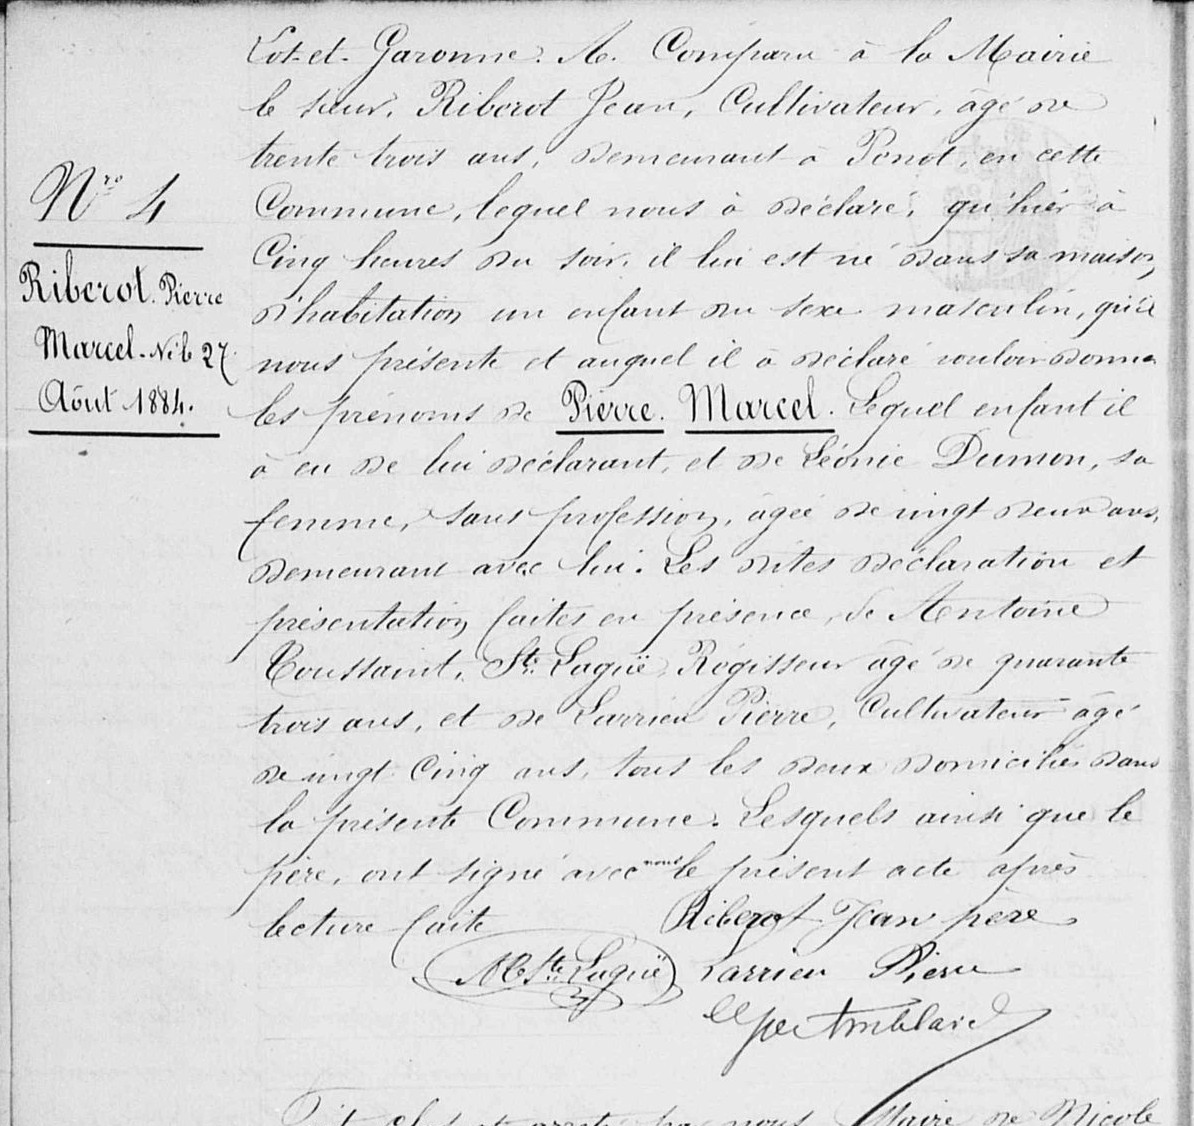 Lot-et-Garonne. A. Comparu à la Mairie
le sieur, Riberot Jean, Cultivateur, âgé de
trente trois ans, demeurant à Penot, en cette
Nro 4
Commune, lequel nous à déclaré, qu'hier à
Cinq heures du soir, il lui est né dans sa maison
Riberot. Pierre
d'habitation un enfant du sexe masculin, qu'il
Marcel. Né le 27
nous présente et auquel il à déclaré vouloir donner
Aôut 1884.
les prénoms de Pierre. Marcel. Lequel enfant il
à eu de lui déclarant, et de Léonie Dumon, sa
femme, sans profession, âgée de vingt deux ans,
demeurant avec lui. Les dites déclaration et
présentation faites en présence, de Antoine
Toussaint, Ste Laguë, Régisseur âgé de quarante
trois ans, et de Larrieu Pierre, Cultivateur âgé
de vingt cinq ans, tous les deux domiciliés dans
la présente Commune. Lesquels ainsi que le
père, ont signé avec nous le présent acte après
lecture faite
Riberot Jean pere
Ste Laguë Larrieu Pierre
Amblard
et arrêté par nous Maire de Nicole